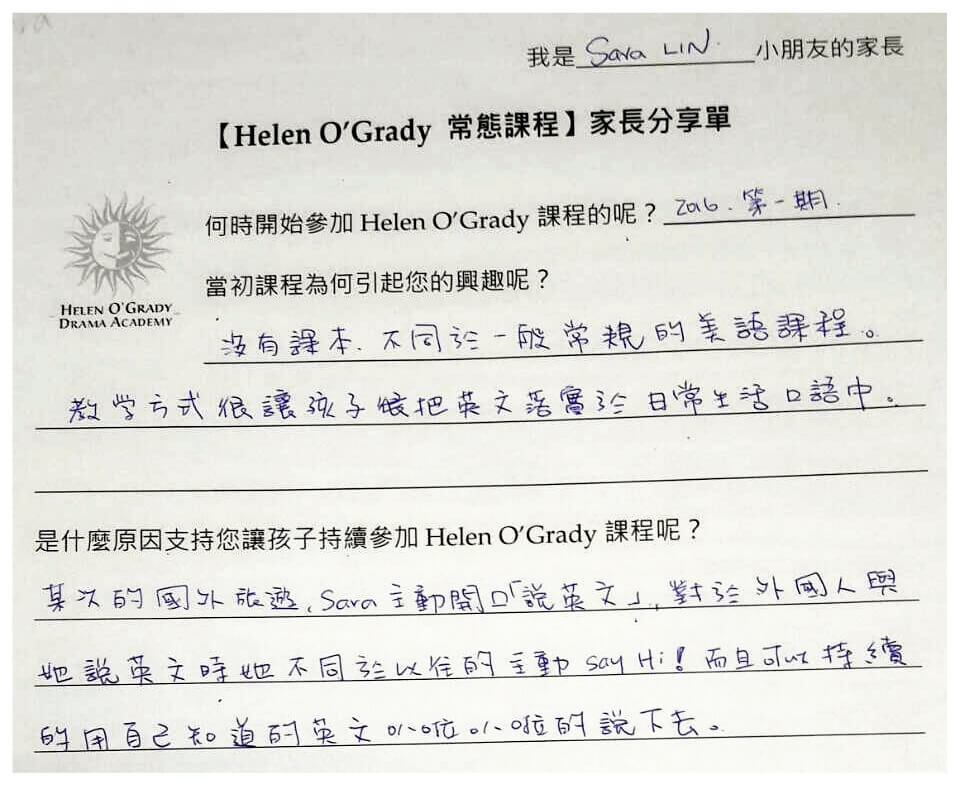 我是 Sara LIN. 小朋友的家長
【Helen O'Grady 常態課程】家長分享單
何時開始參加 Helen O'Grady 課程的呢？ 2016. 第一期.
當初課程為何引起您的興趣呢？
HELEN O'GRADY
DRAMA ACADEMY
沒有課本. 不同於一般常規的美語課程。
教学方式很讓孩子能把英文落實於日常生活口語中。
是什麼原因支持您讓孩子持續參加 Helen O'Grady 課程呢？
某次的國外旅遊, Sara 主動開口「說英文」, 對於外國人與
她說英文時她不同於以往的主動 say Hi! 而且可以持續
的用自己知道的英文 的說下去。